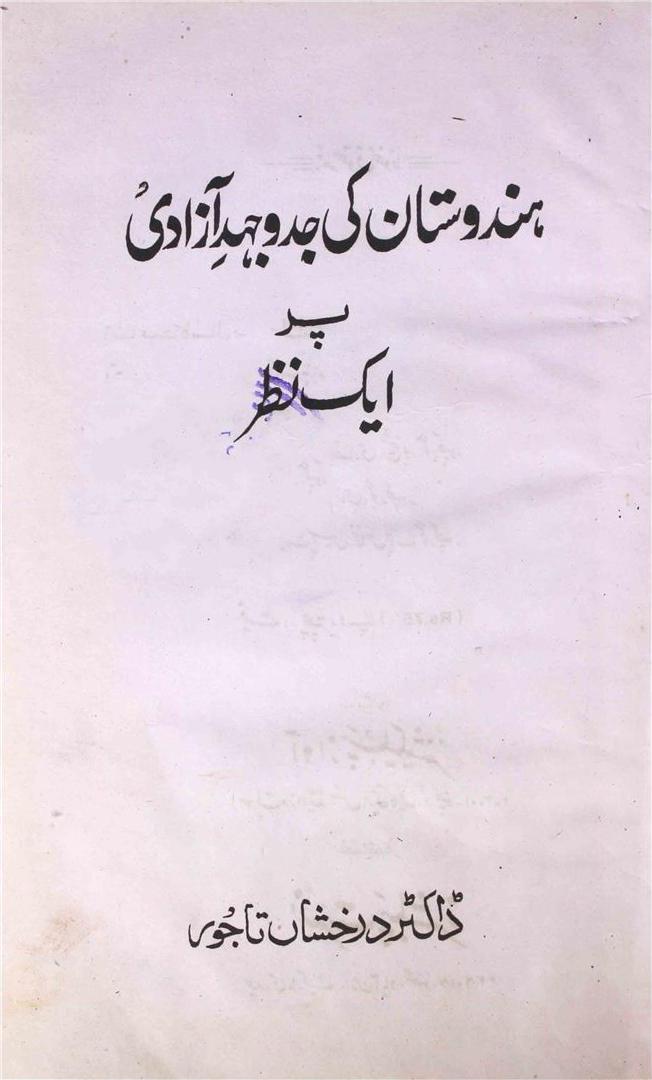 ہندوستان کی جدوجہدِ آزادی
پر
ایک نظر
ڈاکٹر درخشاں تاجور